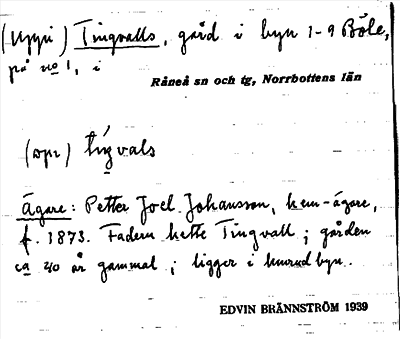 (Uppi) Tingvalls, gård i byn 1-9 Böle,
på no 1, i
Råneå sn och tg, Norrbottens län
(opr) tiŋvals
Ägare: Petter Joel Johansson, hem-ägare,
f. 1873. Fadern hette Tingvall; gården
ca 40 år gammal; ligger i huvudbyn.
EDVIN BRÄNNSTRÖM 1939